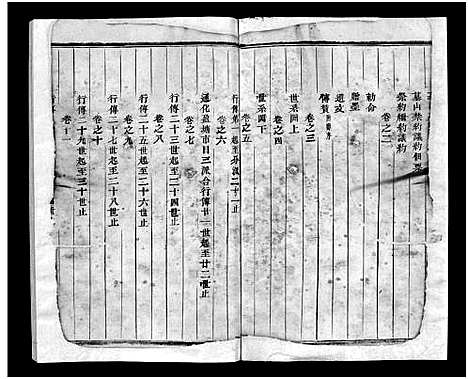 墓山祭約議約佃票
祭約禰約議約
卷之二
勅命
貤墨
遺跋
傳贊
卷之三
世系圖上
卷之四
世系圖下
卷之五
行傳第一起至
卷之六
通化盈塘市目三派合行傳廿一世起至廿二世止
卷之七
行傳二十三世起至二十四世止
卷之八
行傳二十五世起至二十六世止
卷之九
行傳二十七世起至二十八世止
卷之十
行傳二十九世起至三十世止
卷十